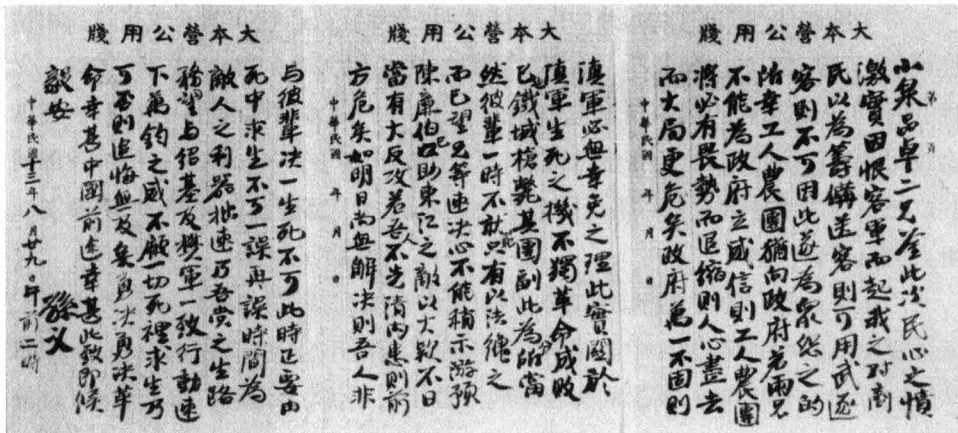 大本營公用牋
第 頁
小泉品卓二兄鑒此次民心之憤
激實因恨客軍而起我之對商
民以為籌備送客則可用武逐
客則不可因此遂為眾怨之的
所幸工人農團猶向政府若兩兄
不能為政府立威信則工人農團
將必有畏勢而退縮則人心盡去
而大局更危矣政府萬一不固則
中華民國 年 月 日
大本營公用牋
滇軍必無幸免之理此實關於
滇軍生死之機不獨革命成敗
已也鐵城槍斃其團副此為所當
然彼輩一時不敢只有以法繩之
而已望兄等速決心不能稍示游預
陳廉伯已助東江之敵以大欵不日
當有大反攻若吾人不先清內患則前
方危矣如明日尚無解決則吾人非
中華民國 年 月 日
大本營公用牋
與彼輩決一生死不可此時正要由
死中求生不可一誤再誤時間為
敵人之利器速乃吾黨之生路
務望與紹基及樊軍一致行動速
下萬鈞之威不顧一切死裡求生乃
可否則追悔無及矣勇決勇決革
命幸甚中國前途幸甚此致即候
毅安 孫文
中華民國十三年八月廿九日午前二時